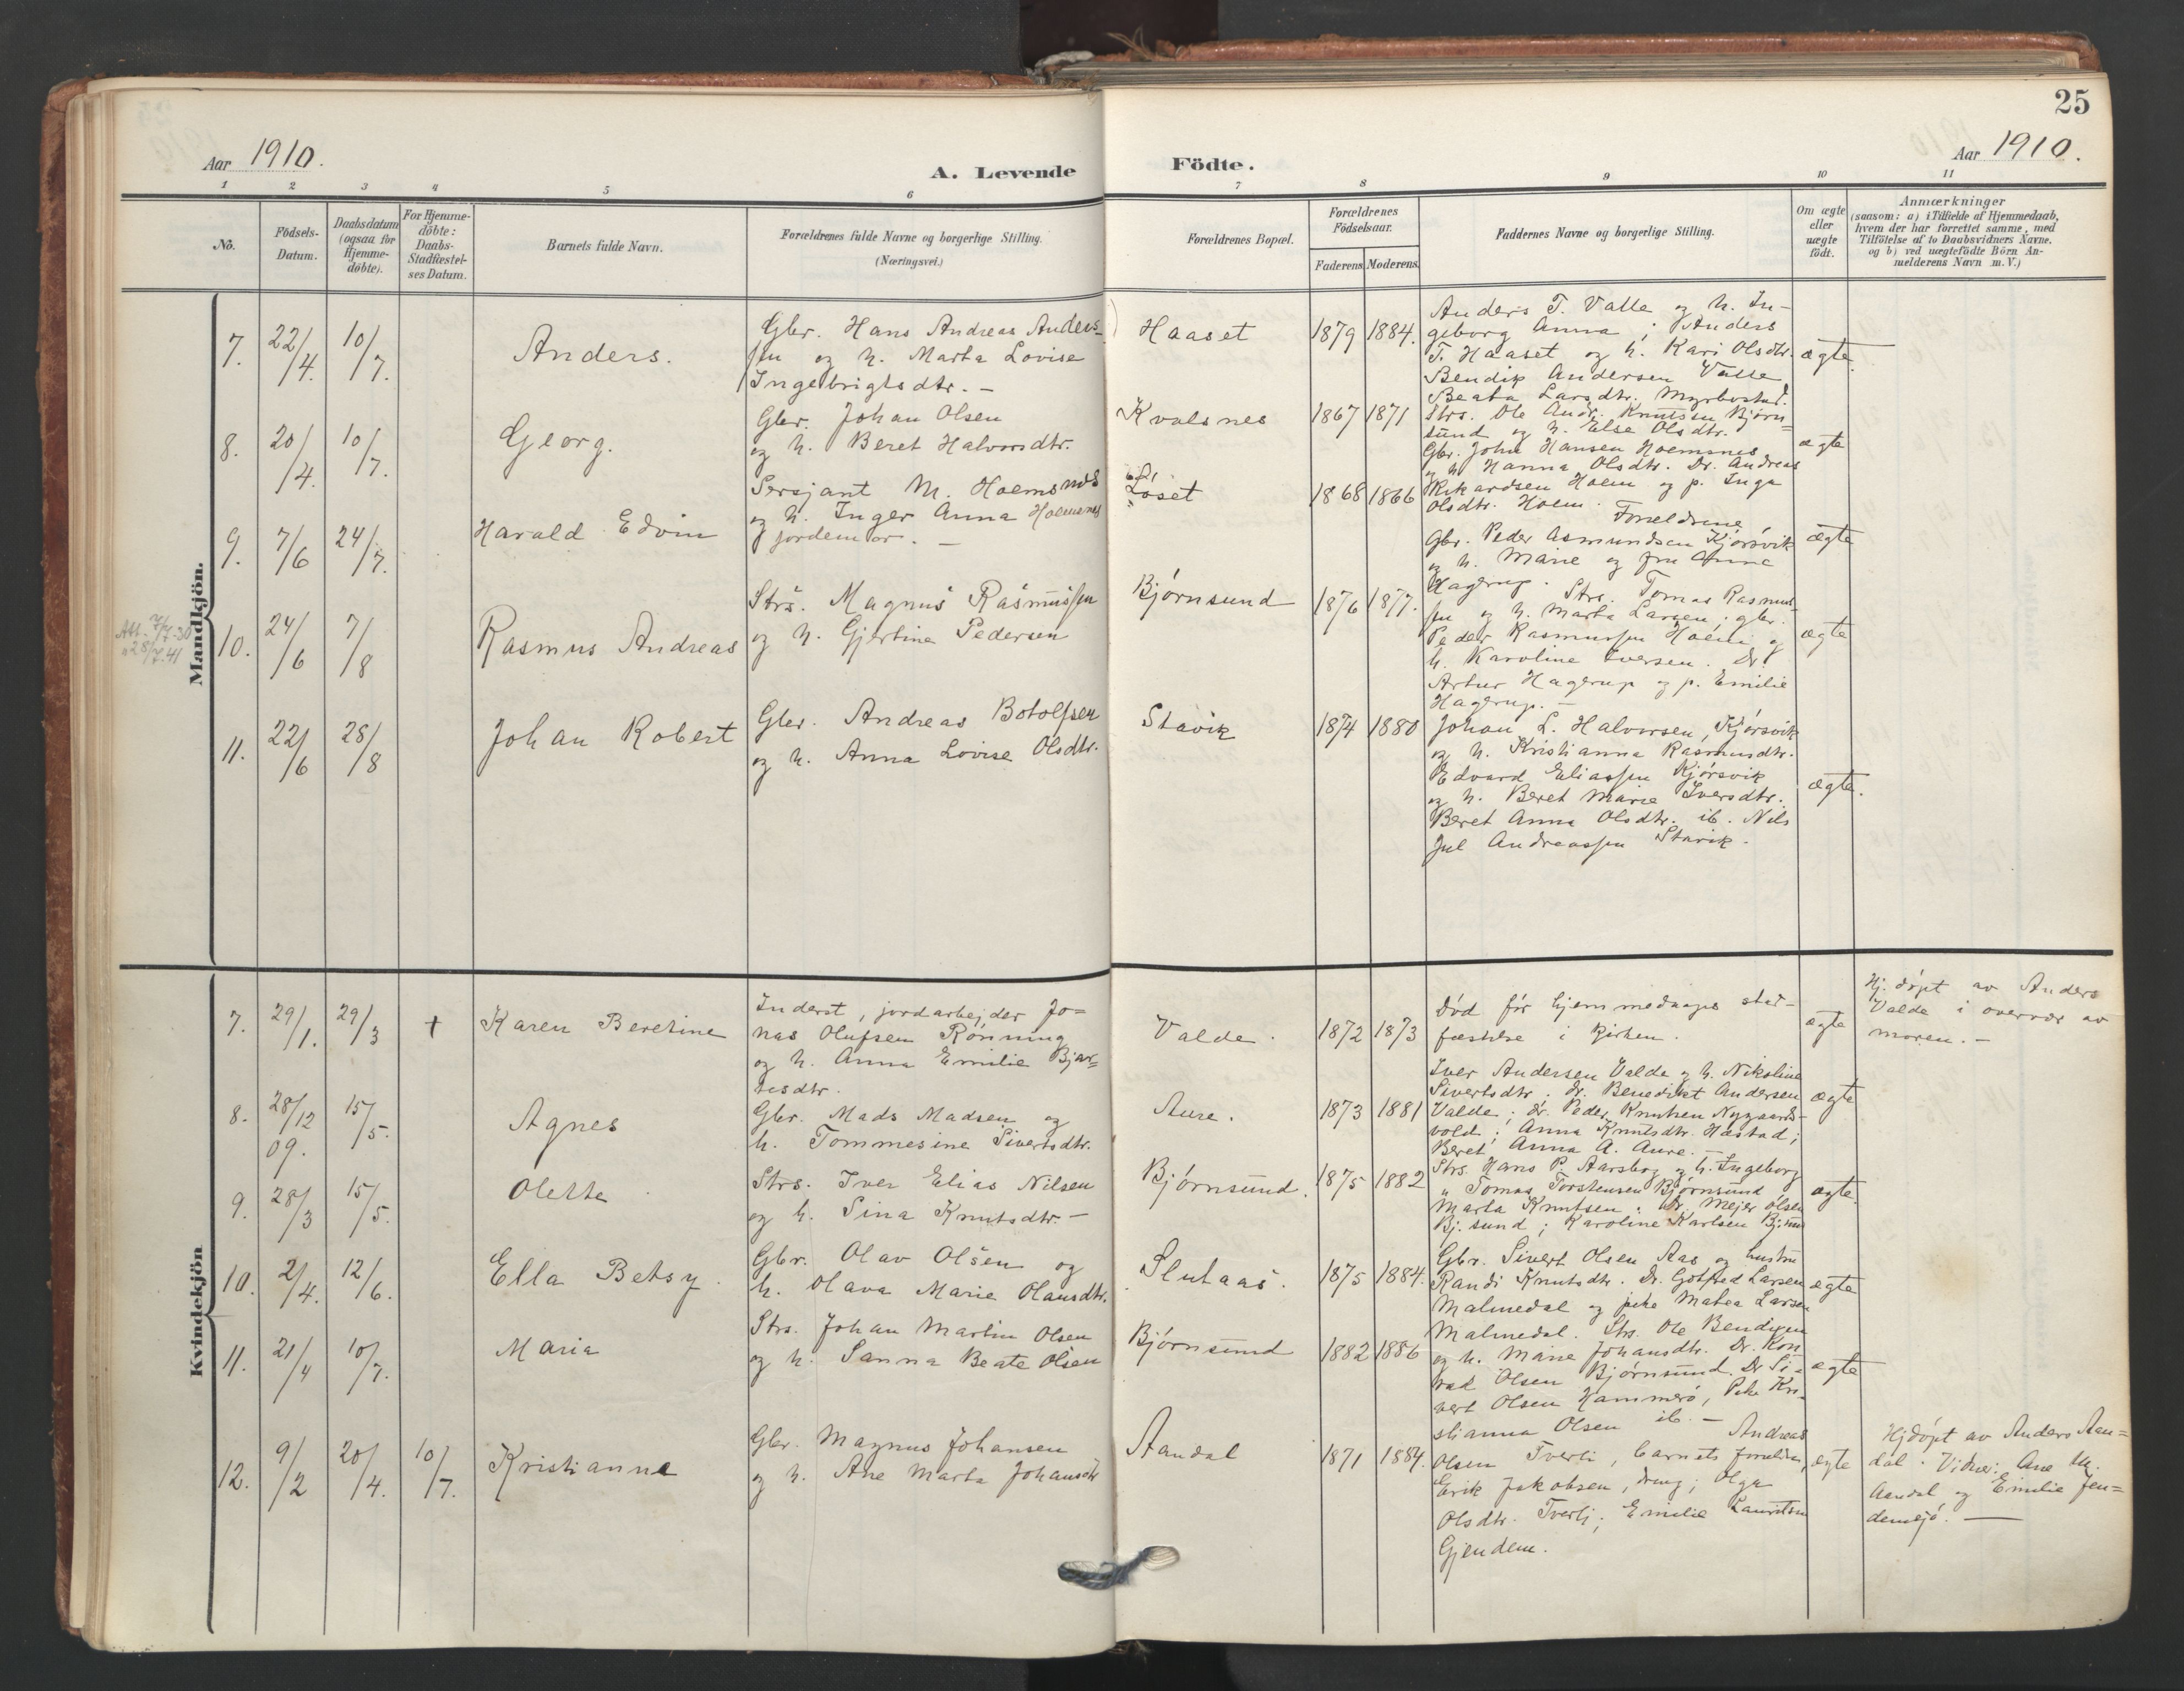 25
Aar 1910.
A. Levende
Födte.
Aar 1910.
1 2 3 4 5 6 7 8 9 10 11
Nö.
Födsels-
Datum.
Daabsdatum
(ogsaa for
Hjemme-
döbte).
For Hjemme-
döbte:
Daabs-
Stadfæstel-
ses Datum.
Barnets fulde Navn.
Forældrenes fulde Navne og borgerlige Stilling.
(Næringsvei.)
Forældrenes Bopæl.
Forældrenes
Födselsaar.
Faderens. Moderens.
Faddernes Navne og borgerlige Stilling.
Om ægte
eller
uægte
födt.
Anmærkninger
(saasom: a) i Tilfælde af Hjemmedaab,
hvem der har forrettet samme, med
Tilföielse af to Daabsvidners Navne.
og b) ved uægtefödte Börn An-
melderens Navn m. V.)
Mandkjön.
7. 22/4. 10/7.
Anders.
Gbr. Hans Andreas Anders-
sen og h. Marta Lovise
Ingebrigtsdtr. -
Haaset
1879 1884.
Anders T. Valle og h. In-
geborg Anna; Anders
T. Haaset og h. Kari Olsdtr.
Bendik Andersen Valle
Beata Larsdtr. Myrbostad.
ægte.
8. 20/4. 10/7.
Georg.
Gbr. Johan Olsen
og h. Beret Halvorsdtr.
Kvalsnes
1867 1871
Strs. Ole Andr. Knutsen Bjørn=
sund og h. Else Olsdtr.
Gbr. John Hansen Hoemsnes
og h. Hanna Olsdtr. Dr. Andreas
Rikardsen Hoem og p. Inga
Olsdtr. Hoem.
ægte
9. 7/6 24/7.
Harald Edvin
Sersjant M. Hoemsnes
og h. Inger Anna Hoemsnes
jordemor. -
Løset
1868 1866
Foreldrene,
Gbr. Peder Asmundsen Kjørsvik
og h. Marie og fru Anna
Hagerup.
ægte
Att. 7/7-30
" 28/7.41
10. 24/6 7/8
Rasmus Andreas
Strs. Magnus Rasmussen
og h. Gjertine Pedersen
Bjørnsund
1876 1877.
Strs. Tomas Rasmus-
sen og h. Marta Larsen; gbr.
Peder Rasmussen Hoem og
h. Karoline Iversen. Dr.
Artur Hagerup og p. Emilie
Hagerup. -
ægte
11. 22/6 28/8
Johan Robert
Gbr. Andreas Botolfsen
og h. Anna Lovise Olsdtr.
Stavik
1874 1880
Johan L. Halvorsen, Kjørsvik
og h. Kristianna Rasmusdtr.
Edvard Eliassen Kjørsvik
og h. Beret Marie Iversdtr.
Beret Anna Olsdtr. ib. Nils
Jul Andreassen Stavik.
ægte.
Kvindekjön
7. 29/1. 29/3 +
Karen Beretine
Inderst, jordarbejder Jo=
nas Olufsen Rønning
og h. Anna Emilie Bjar=
tesdtr.
Valde.
1872 1873
Død før hjemmedaapes stad-
fæstelse i kirken.
ægte
Hj. døpt av Anders
Valde i overvær av
moren. -
8. 28/12 09. 15/5.
Agnes
Gbr. Mads Madsen og
h. Tommesine Sivertsdtr.
Aure.
1873 1881
Iver Andersen Valde og h. Nikoline
Sivertsdtr; dr. Benedikt Andersen
Valde; dr. Peder Knutsen Nygaards-
vold; Anna Knutsdtr. Hastad;
Beret Anna A. Aure. -
ægte
9. 28/3 15/5.
Olette
Strs. Iver Elias Nilsen
og h. Sina Knutsdtr. -
Bjørnsund.
1875 1882
Strs. Hans P. Aarsbog og h. Ingeborg
" Tomas Torstensen Bjørnsund
Marta Knutsen; Dr. Mejer Olsen
Bj.sund; Karoline Karlsen Bj.sund
ægte.
10. 2/4. 12/6.
Ella Betsy.
Gbr. Olav Olsen og
h. Olava Marie Olausdtr.
Slutaas.
1875 1884.
Gbr. Sivert Olsen Aas og hustru
Randi Knutsdtr. Dr. Gotfred Larsen
Malmedal og pike Matea Larsen
Malmedal.
ægte
11. 21/4 10/7.
Maria
Strs. Johan Martin Olsen
og h. Sanna Beate Olsen
Bjørnsund
1882 1886
Strs. Ole Bendixen
og h. Marie Johansdtr. Dr. Kon
rad Olsen Bjørnsund. Dr. Si-
vert Olsen Hammerø, Pike Kri-
stianna Olsen ib. -
ægte
12. 9/2 20/4. 10/7.
Kristianna
Gbr. Magnus Johansen
og h. Ane Marta Johansdtr
Aandal
1871 1884.
Andreas
Olsen Tverli, barnets foreldre,
Erik Jakobsen, dreng; Olga
Olsdtr. Tverli; Emilie Lauritsen
Gjendem.
ægte
Hjdøpt av Anders Aan=
dal. Vidner: Ane M.
Aandal og Emilie Jen=
demsjø. -